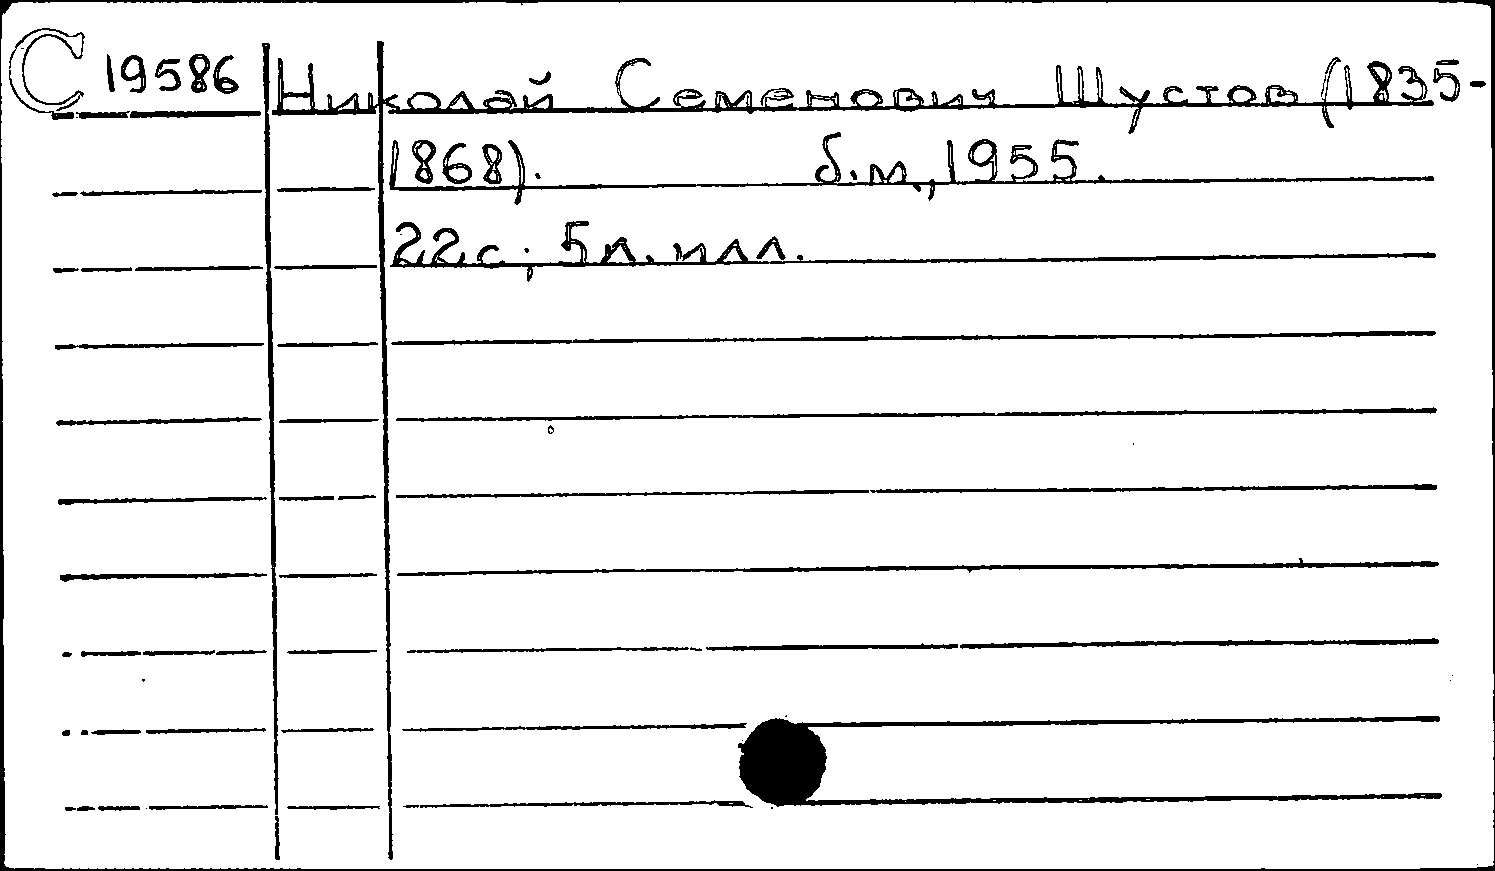 С 19586 Николай Семенович Шустов (1835-
1868). б.м., 1955.
22с.; 5л. илл.